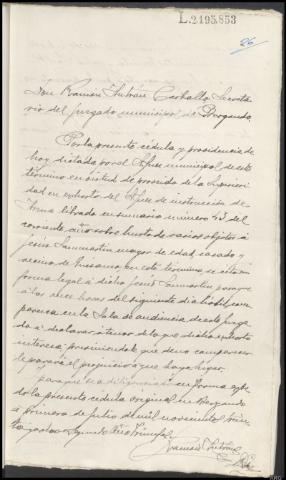 L.2195.853
26
Don Ramón Antrán Carballo Secreta
rio del Juzgado municipal de Bergondo
Por la presente cédula y providencia de
hoy dictada por el Sr Juez municipal de este
término en virtud de proveido de la Superiori
dad en exhorto del Sr Juez de instrucción de
librada en sumario número 43 del
corriente año sobre hurto de varios objetos á
Jesús Sanmartín mayor de edad, casado y
vecino de Guísamo, en este término, se cita en
forma legal á dicho Jesús Sanmartín para que
á las doce horas del siguiente dia habil com
parezca en la Sala de audiencia de este Juzga
do á declarar á tenor de lo que dicho exhorto
interesa previniéndole que de no comparecer
le parará el perjuicio á que haya lugar
para que sea diligenciada en forma expi
do la presente cédula original en Bergondo
á primero de Julio de mil novecientos trein
ta y ocho Segundo Año Triunfal
Ramón